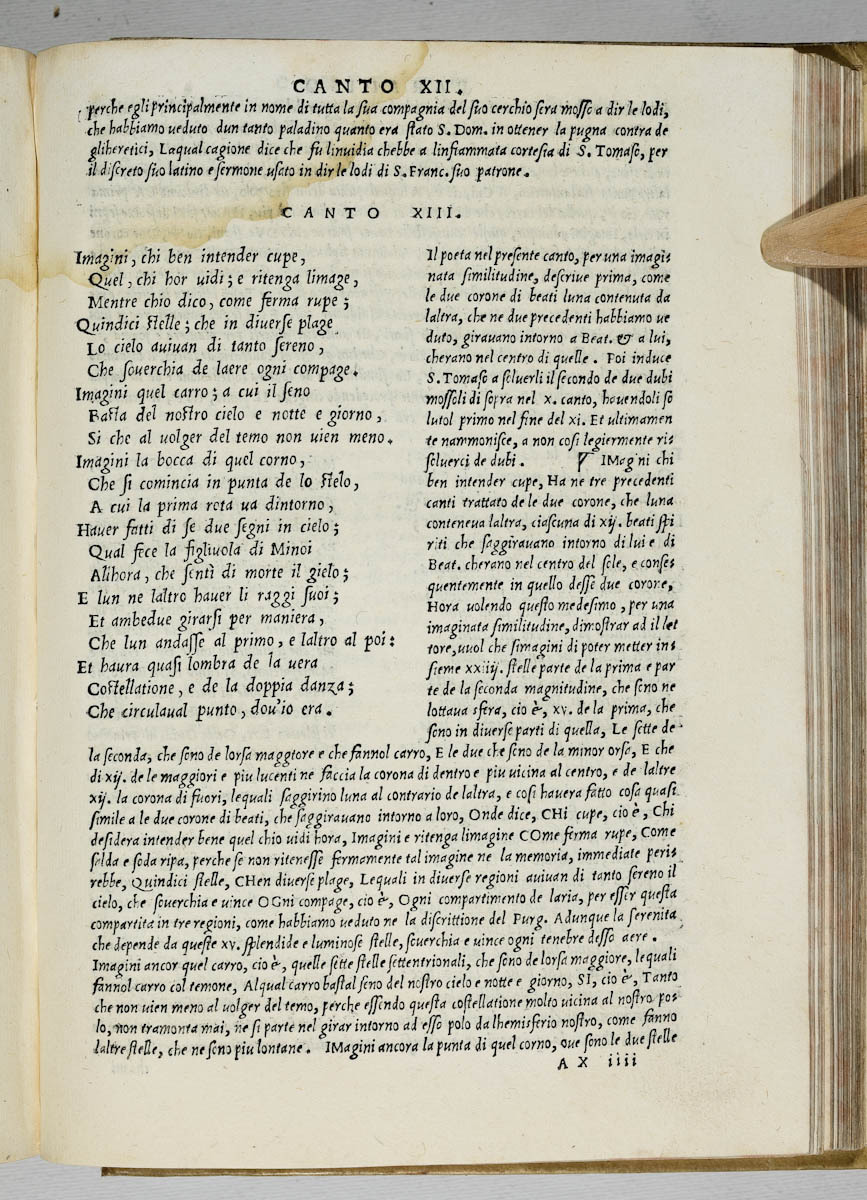 CANTO XII.
perche egli principalmente in nome di tutta la sua compagnia del suo cerchio sera mosso a dir le lodi,
che habbiamo ueduto dun tanto paladino quanto era stato S. Dom. in ottener la pugna contra de
gliheretici, Laqual cagione dice che fu linuidia chebbe a linfiammata cortesia di S. Tomaso, per
il discreto suo latino e sermone usato in dir le lodi di S. Franc. suo patrone.
CANTO XIII.
Imagini, chi ben intender cupe,
Quel, chi hor uidi; e ritenga limage,
Mentre chio dico, come ferma rupe;
Quindici stelle; che in diuerse plage
Lo cielo auiuan di tanto sereno,
Che souerchia de laere ogni compage.
Imagini quel carro; a cui il seno
Basta del nostro cielo e notte e giorno,
Si che al uolger del temo non uien meno.
Imagini la bocca di quel corno,
Che si comincia in punta de lo stelo,
A cui la prima rota ua dintorno,
Hauer fatti di se due segni in cielo;
Qual fece la figliuola di Minoi
Allhora, che sentì di morte il gielo;
E lun ne laltro hauer li raggi suoi;
Et ambedue girarsi per maniera,
Che lun andasse al primo, e laltro al poi:
Et haura quasi lombra de la uera
Costellatione, e de la doppia danza;
Che circulaual punto, dou'io era.
Il poeta nel presente canto, per una imagi-
nata similitudine, descriue prima, come
le due corone di beati luna contenuta da
laltra, che ne due precedenti habbiamo ue
duto, girauano intorno a Beat. & a lui,
cherano nel centro di quelle. Poi induce
S. Tomaso a soluerli il secondo de due dubi
mossoli di sopra nel x. canto, hauendoli so
lutol primo nel fine del xi. Et ultimamen
te nammonisce, a non cosi legiermente ri-
soluerci de dubi. IMagini chi
ben intender cupe, Ha ne tre precedenti
canti trattato de le due corone, che luna
conteneua laltra, ciascuna di xij. beati spi
riti che saggirauano intorno di lui e di
Beat. cherano nel centro del sole, e conse-
quentemente in quello desse due corone,
Hora uolendo questo medesimo, per una
imaginata similitudine, dimostrar ad il let
tore, uuol che simagini di poter metter in-
sieme xxiiij. stelle parte de la prima e par
te de la seconda magnitudine, che sono ne
lottaua sfera, cio è, xv. de la prima, che
sono in diuerse parti di quella, Le sette de
la seconda, che sono de lorsa maggiore e che fannol carro, E le due che sono de la minor orsa, E che
di xij. de le maggiori e piu lucenti ne faccia la corona di dentro e piu uicina al centro, e de laltre
xij. la corona di fuori, lequali saggirino luna al contrario de laltra, e cosi hauera fatto cosa quasi
simile a le due corone di beati, che saggirauano intorno a loro, Onde dice, CHi cupe, cio è, Chi
desidera intender bene quel chio uidi hora, Imagini e ritenga limagine COme ferma rupe, Come
salda e soda ripa, perche se non ritenesse fermamente tal imagine ne la memoria, immediate peri-
rebbe, Quindici stelle, CHen diuerse plage, Lequali in diuerse regioni auiuan di tanto sereno il
cielo, che souerchia e uince OGni compage, cio è, Ogni compartimento de laria, per esser questa
compartita in tre regioni, come habbiamo ueduto ne la discrittione del Purg. Adunque la serenita
che depende da queste xv. splendide e luminose stelle, souerchia e uince ogni tenebre desso aere.
Imagini ancor quel carro, cio è, quelle sette stelle settentrionali, che sono de lorsa maggiore, lequali
fannol carro col temone, Alqual carro bastal seno del nostro cielo e notte e giorno, SI, cio è, Tanto
che non uien meno al uolger del temo, perche essendo questa costellatione molto uicina al nostro po-
lo, non tramonta mai, ne si parte nel girar intorno ad esso polo da lhemisferio nostro, come fanno
laltre stelle, che ne sono piu lontane. IMagini ancora la punta di quel corno, oue sono le due stelle
A X iiii